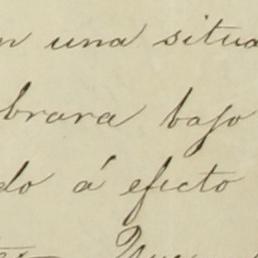 n una situa
brara bajo
do á efecto